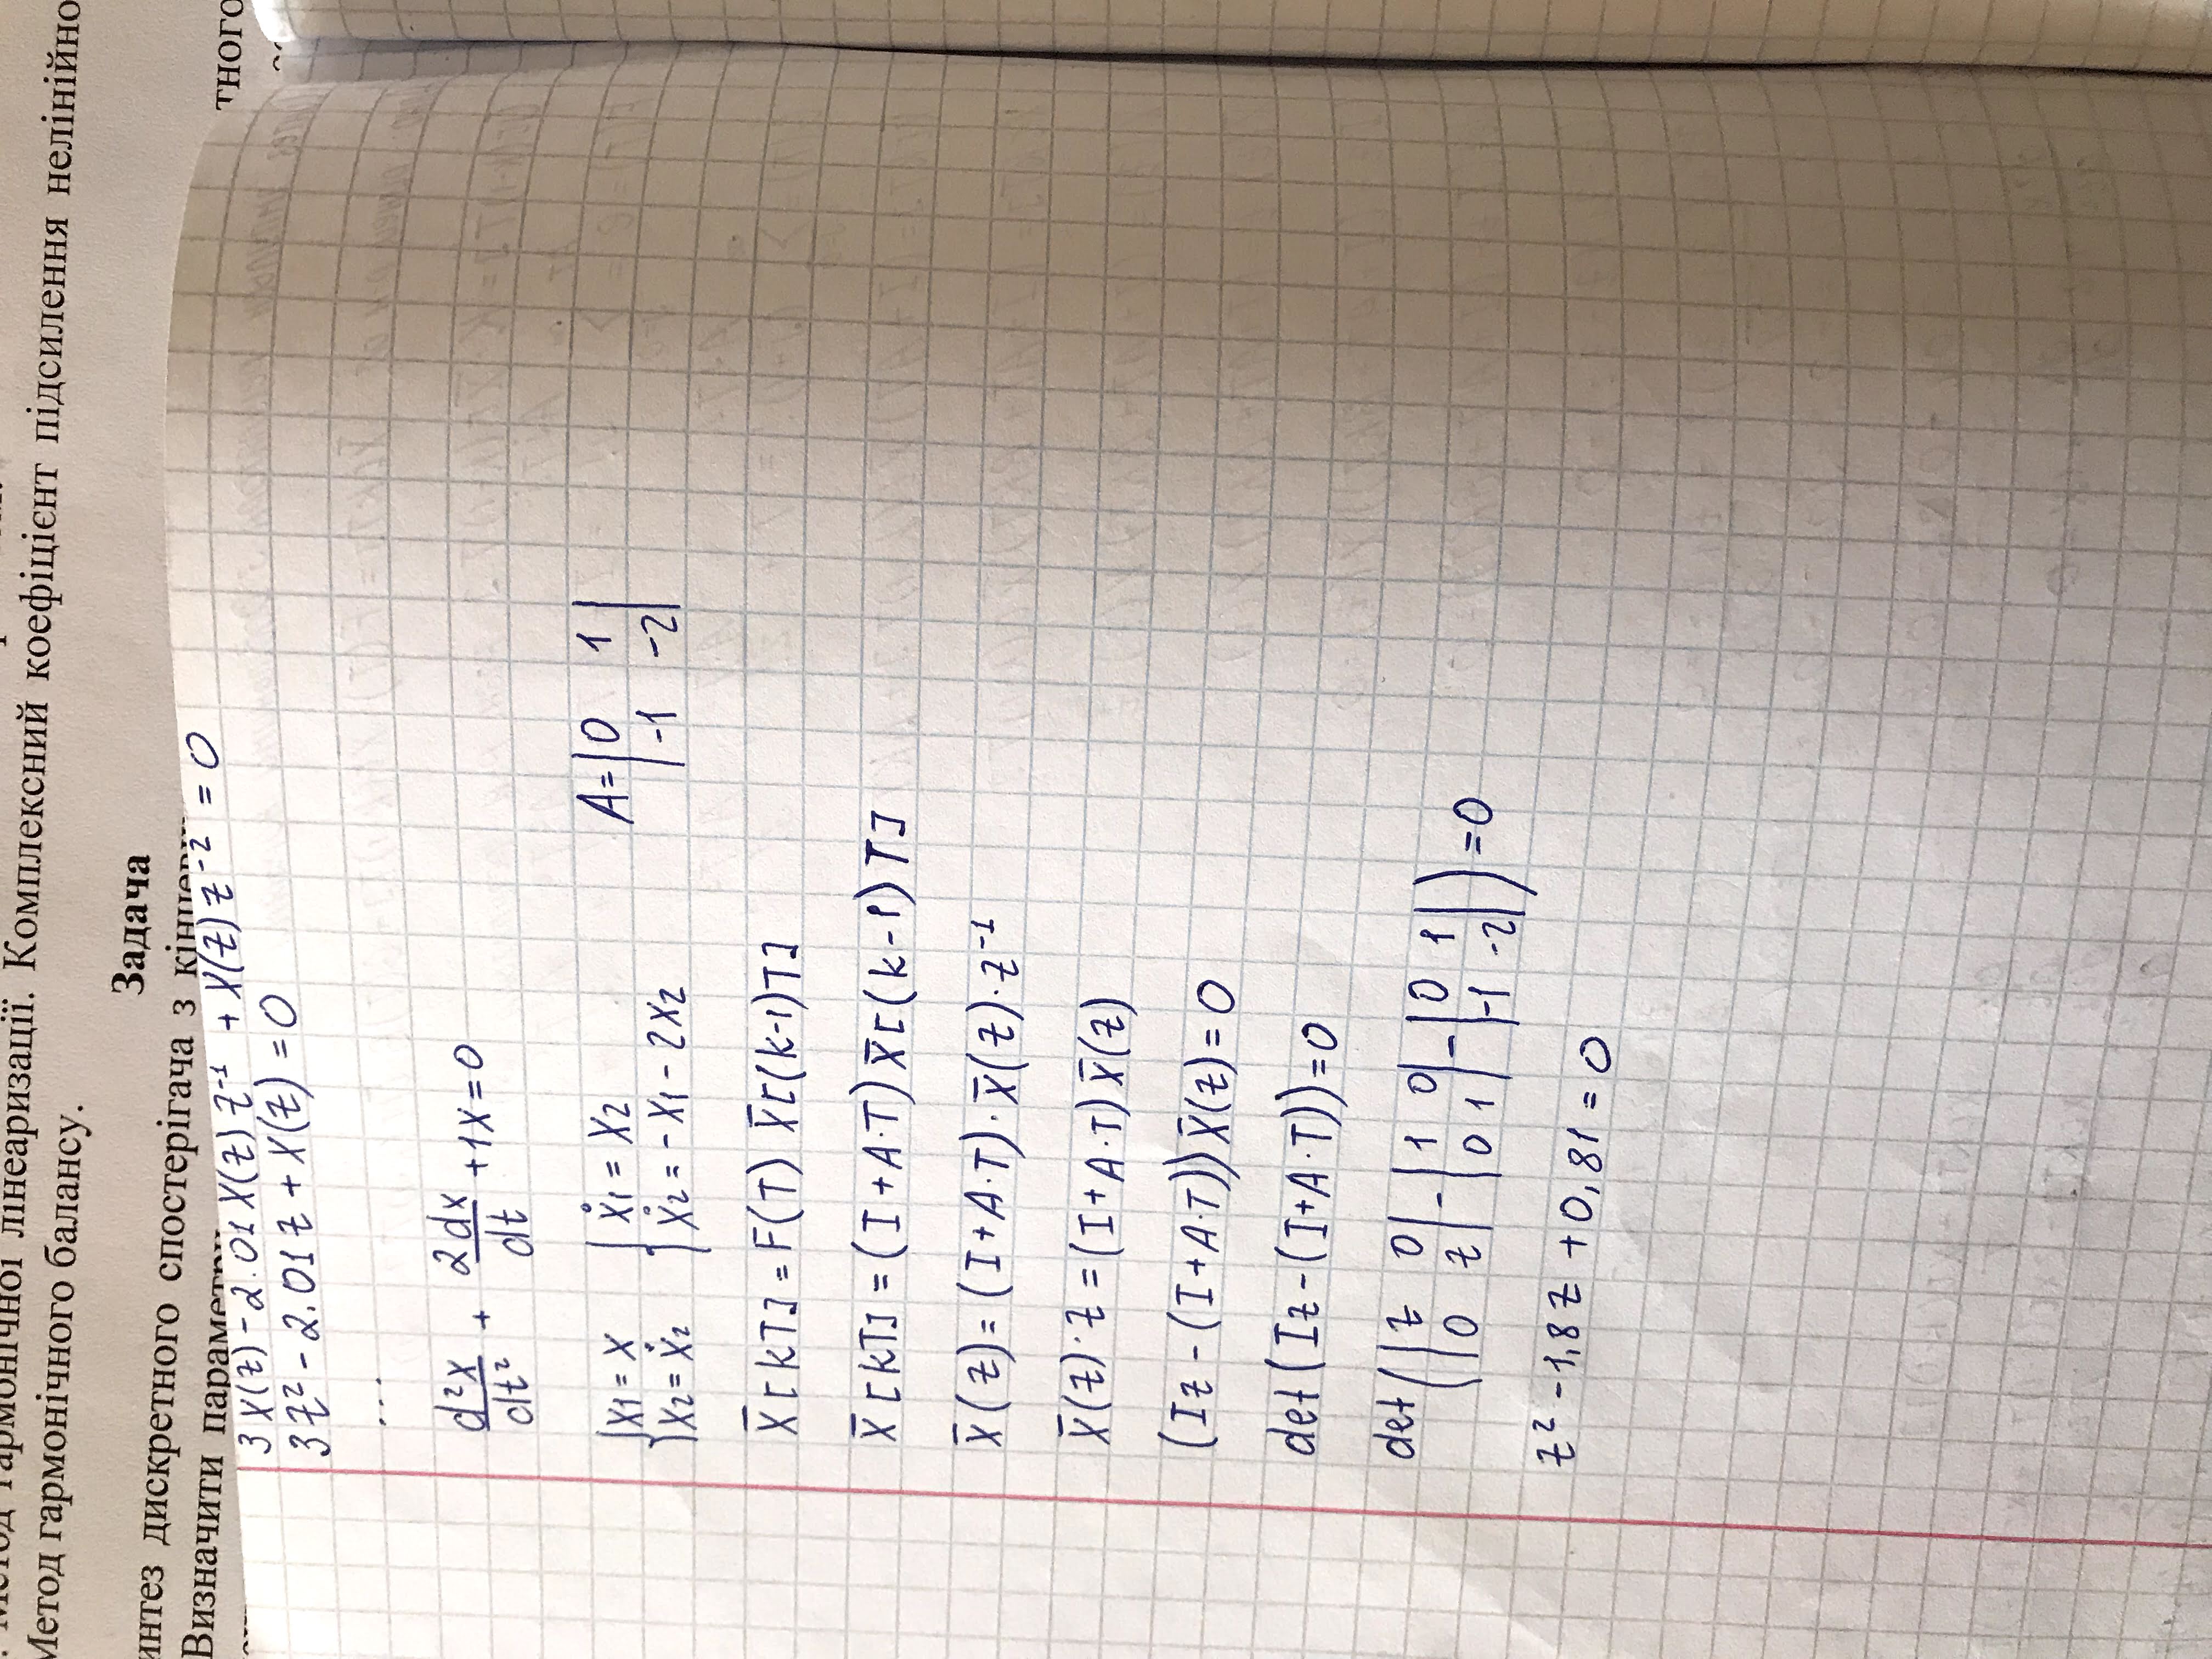 Метод гармонічної лінеаризації. Комплексний коефіцієнт підсилення нелінійно
Метод гармонічного балансу.
Задача
интез дискретного спостерігача з
Визначити
тного
3X(z) - 2.01X(z)z⁻¹ + X(z)z⁻² = 0
3z² - 2.01z + X(z) = 0
...
d²x/dt² + 2dx/dt + 1x = 0
{x1 = x {ẋ1 = x2 A = |0 1|
{x2 = ẋ2 {ẋ2 = -x1 - 2x2 |-1 -2|
X̄[kT] = F(T) X̄[(k-1)T]
X̄[kT] = (I + A·T) X̄[(k-1)T]
X̄(z) = (I + A·T)·X̄(z)·z⁻¹
X̄(z)·z = (I + A·T) X̄(z)
(Iz - (I + A·T)) X̄(z) = 0
det(Iz - (I + A·T)) = 0
det(|z 0| - |1 0| - |0 1|) = 0
|0 z| |0 1| |-1 -2|
z² - 1,8z + 0,81 = 0